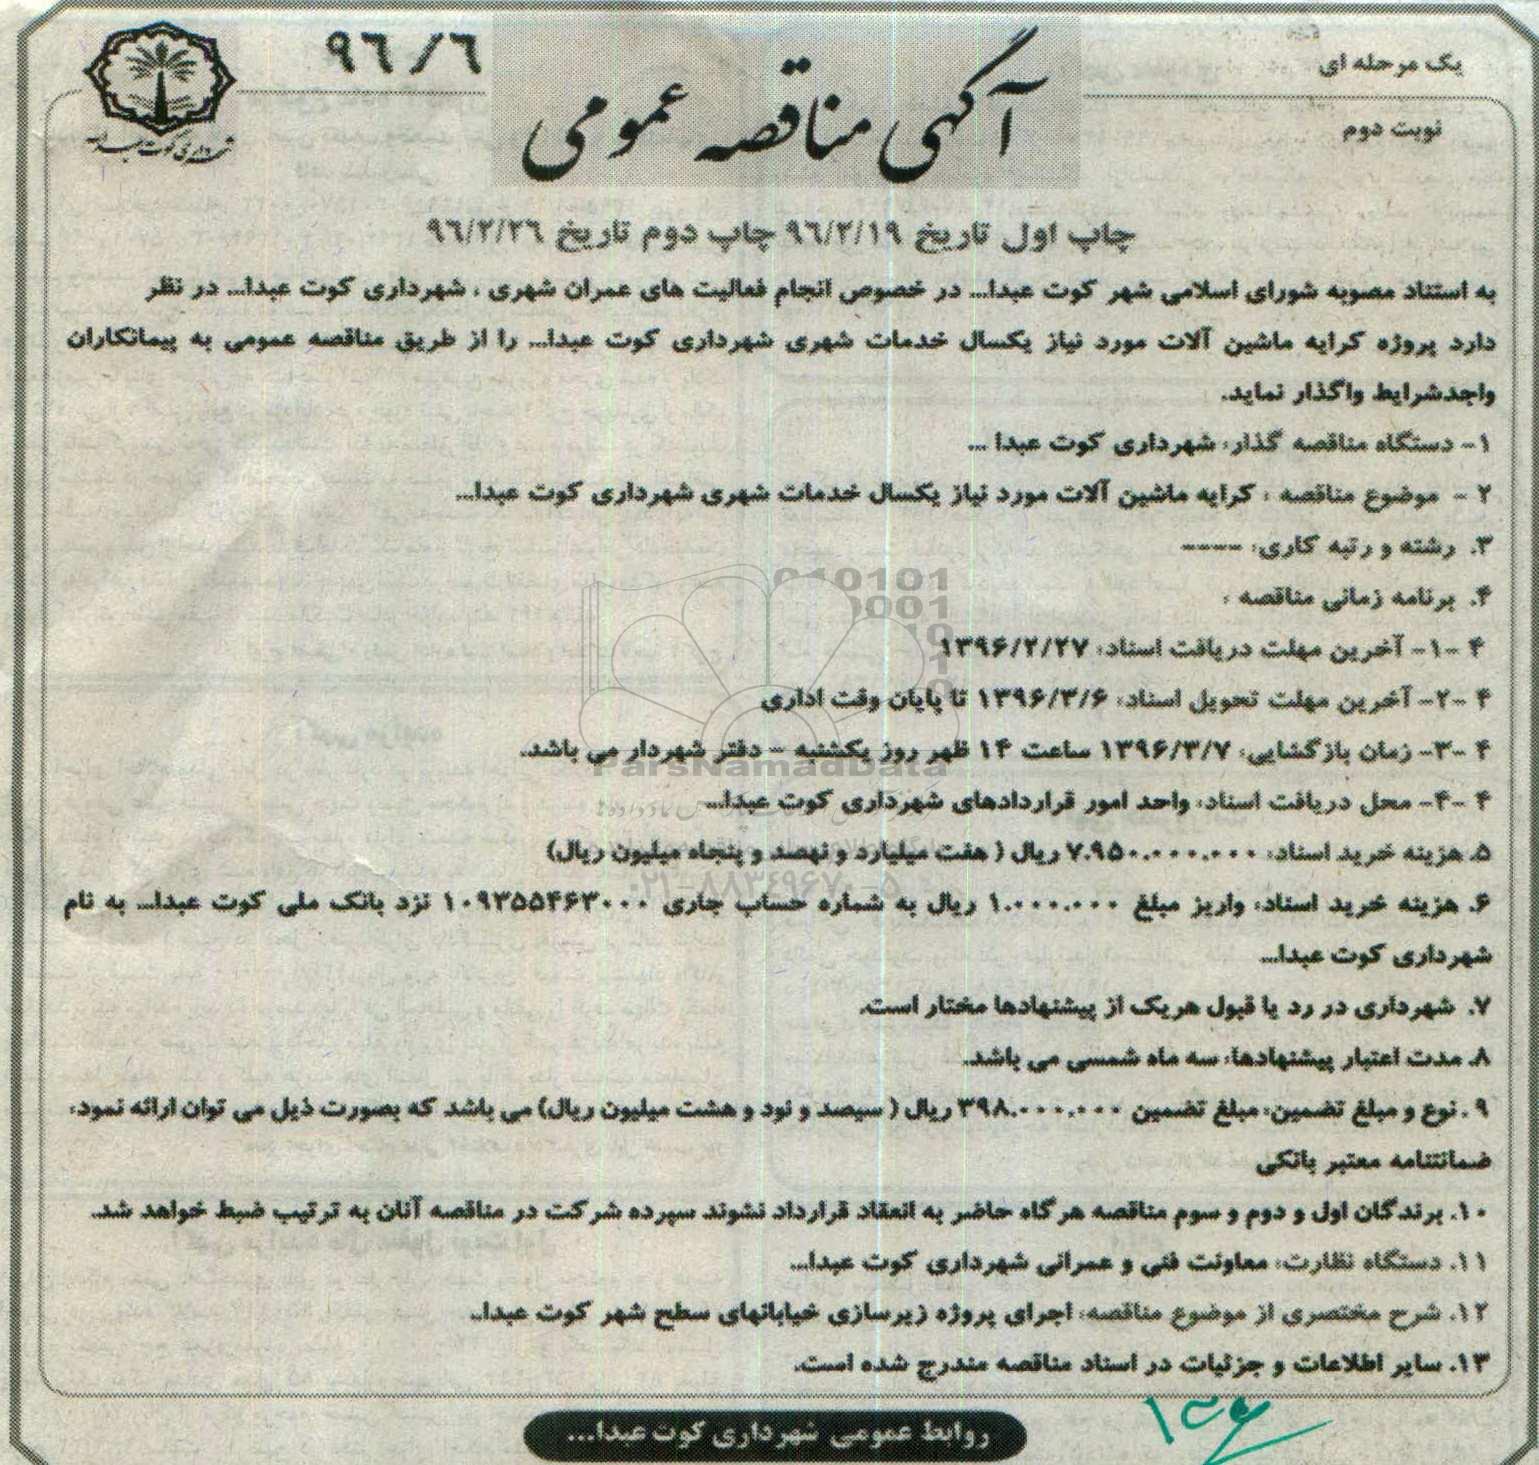 یک مرحله ای
آگهی مناقصه عمومی
۹۶/۶
نوبت دوم
شهرداری کوت عبدا...
چاپ اول تاریخ ۹۶/۲/۱۹ چاپ دوم تاریخ ۹۶/۲/۲۶
به استناد مصوبه شورای اسلامی شهر کوت عبدا... در خصوص انجام فعالیت های عمران شهری ، شهرداری کوت عبدا... در نظر
دارد پروژه کرایه ماشین آلات مورد نیاز یکسال خدمات شهری شهرداری کوت عبدا... را از طریق مناقصه عمومی به پیمانکاران
واجدشرایط واگذار نماید.
۱- دستگاه مناقصه گذار: شهرداری کوت عبدا ...
۲ - موضوع مناقصه : کرایه ماشین آلات مورد نیاز یکسال خدمات شهری شهرداری کوت عبدا...
۳. رشته و رتبه کاری: ----
۴. برنامه زمانی مناقصه :
۴ -۱- آخرین مهلت دریافت اسناد: ۱۳۹۶/۲/۲۷
۴ -۲- آخرین مهلت تحویل اسناد: ۱۳۹۶/۳/۶ تا پایان وقت اداری
۴ -۳- زمان بازگشایی: ۱۳۹۶/۳/۷ ساعت ۱۴ ظهر روز یکشنبه - دفتر شهردار می باشد.
ParsNamadData
۴ -۴- محل دریافت اسناد: واحد امور قراردادهای شهرداری کوت عبدا...
۵. هزینه خرید اسناد: ۷.۹۵۰.۰۰۰.۰۰۰ ریال ( هفت میلیارد و نهصد و پنجاه میلیون ریال)
۰۲۱-۸۸۳۴۹۶۷۰-۵
۶. هزینه خرید اسناد: واریز مبلغ ۱.۰۰۰.۰۰۰ ریال به شماره حساب جاری ۱۰۹۳۵۵۴۶۳۰۰۰ نزد بانک ملی کوت عبدا... به نام
شهرداری کوت عبدا...
۷. شهرداری در رد یا قبول هریک از پیشنهادها مختار است.
۸. مدت اعتبار پیشنهادها: سه ماه شمسی می باشد.
۹ . نوع و مبلغ تضمین: مبلغ تضمین ۳۹۸.۰۰۰.۰۰۰ ریال ( سیصد و نود و هشت میلیون ریال) می باشد که بصورت ذیل می توان ارائه نمود:
ضمانتنامه معتبر بانکی
۱۰. برندگان اول و دوم و سوم مناقصه هرگاه حاضر به انعقاد قرارداد نشوند سپرده شرکت در مناقصه آنان به ترتیب ضبط خواهد شد.
۱۱. دستگاه نظارت: معاونت فنی و عمرانی شهرداری کوت عبدا...
۱۲. شرح مختصری از موضوع مناقصه: اجرای پروژه زیرسازی خیابانهای سطح شهر کوت عبدا..
۱۳. سایر اطلاعات و جزئیات در اسناد مناقصه مندرج شده است.
روابط عمومی شهرداری کوت عبدا...